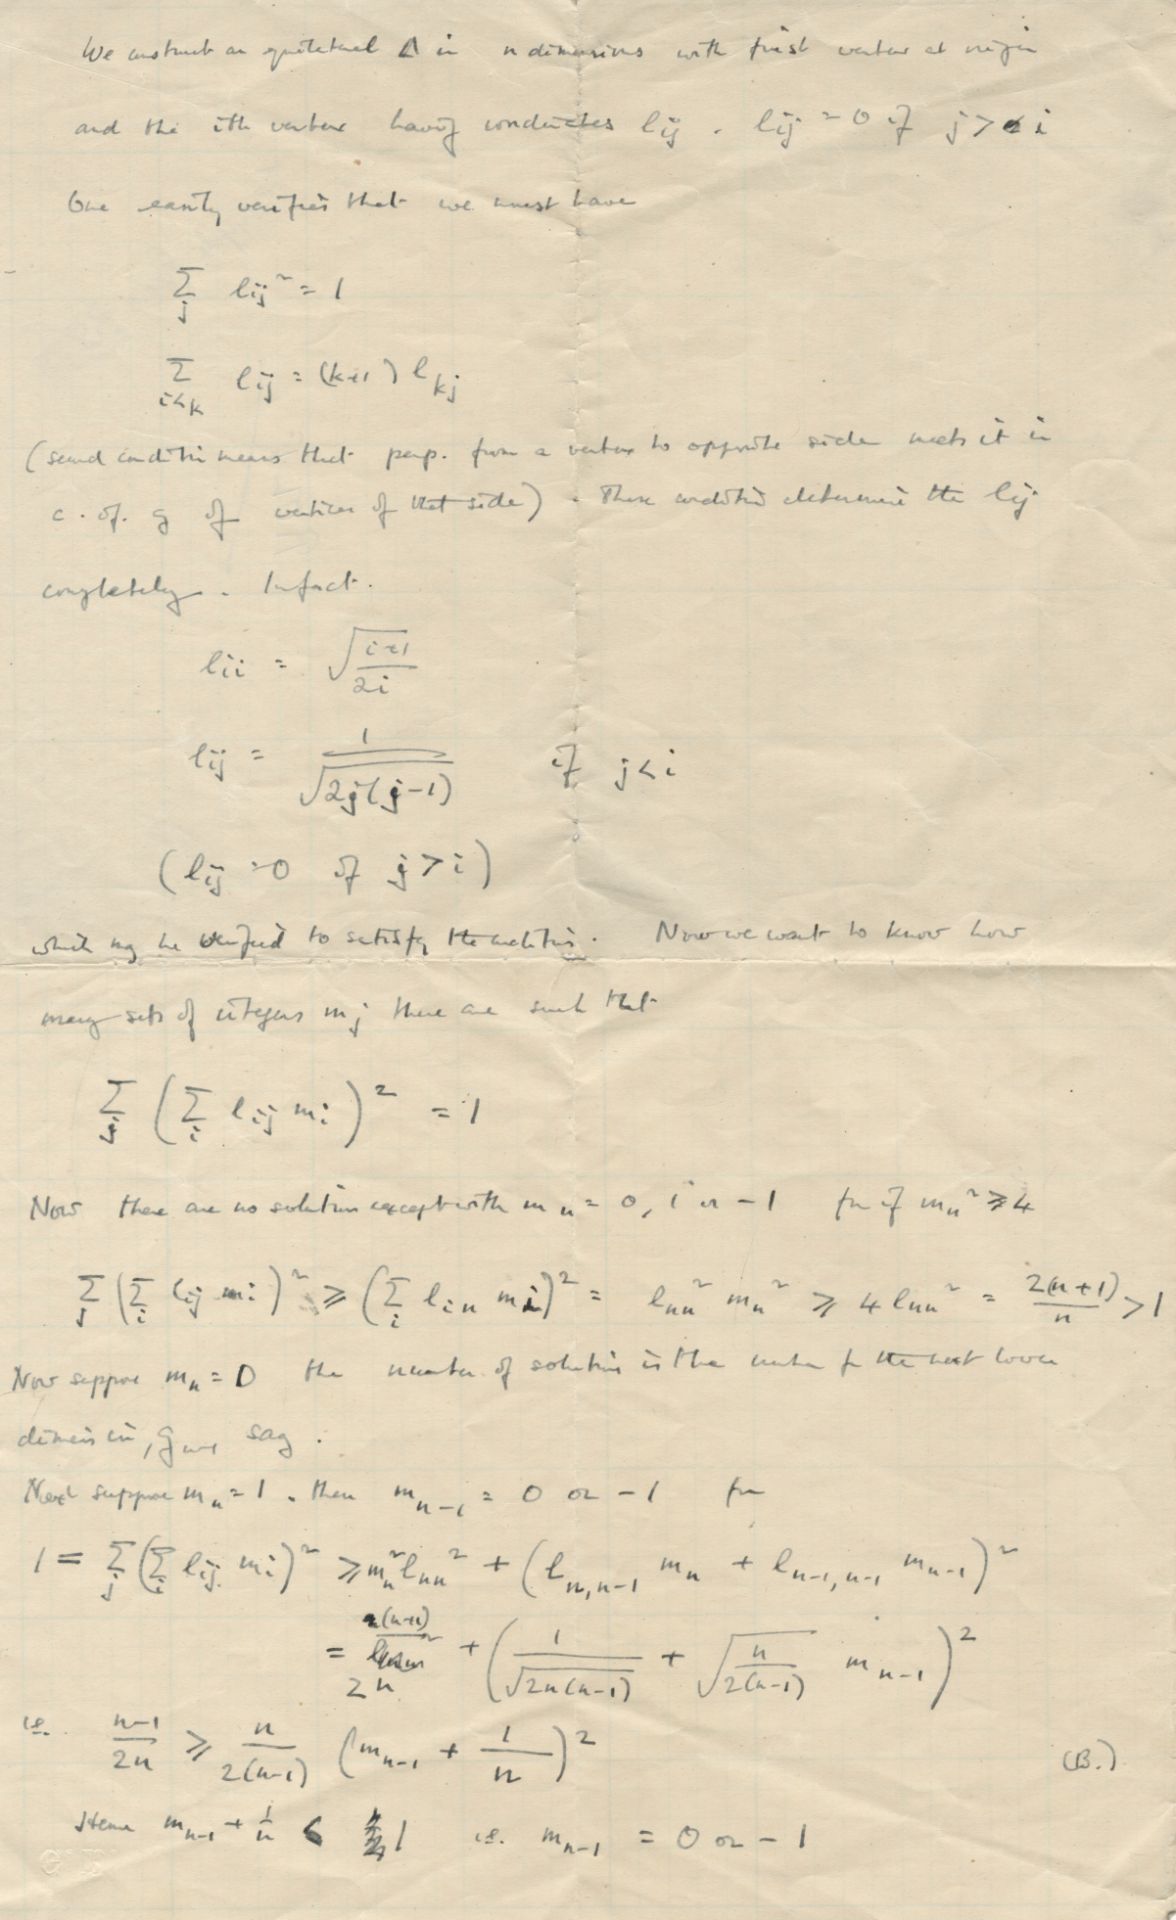 We construct an equilateral Δ in n dimensions with first vertex at origin
and the ith vertex having coordinates lij . lij = 0 if j > i
One easily verifies that we must have
∑j lij² = 1
∑i<k lij = (k+1) lkj
(second condition means that perp. from a vertex to opposite side meets it in
c. of. g of vertices of that side) . These conditions determine the lij
completely . Infact .
lii = √((i+1)/2i)
lij = 1/√(2j(j-1)) if j < i
(lij = 0 if j > i)
which may be verified to satisfy the conditions. Now we want to know how
many sets of integers mj there are such that
∑j (∑i lij mi)² = 1
Now there are no solution except with mn = 0, 1 or -1 for if mn² ⩾ 4
∑j (∑i lij mi)² ⩾ (∑i lin mi)² = lnn² mn² ⩾ 4 lnn² = 2(n+1)/n > 1
Now suppose mn = 0 the number of solutions is the number for the next lower
dimension, gn-1 say .
Next suppose mn = 1 . then mn-1 = 0 or -1 for
1 = ∑j (∑i lij mi)² ⩾ mn² lnn² + (ln,n-1 mn + ln-1,n-1 mn-1)²
= (n+1)/2n + (1/√(2n(n-1)) + √(n/2(n-1)) mn-1)²
i.e. (n-1)/2n ⩾ n/2(n-1) (mn-1 + 1/n)² (B.)
Hence mn-1 + 1/n < 1 i.e. mn-1 = 0 or -1